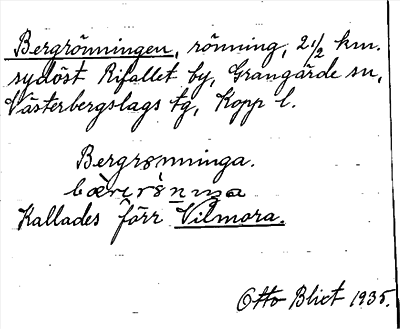 Bergrönningen, rönning, 2 1/2 km.
sydöst Rifallet by, Grangärde sn,
Västerbergslags tg, Kopp l.
Bergrønninga.
Kallades förr Vilmora.
Otto Blixt 1935.